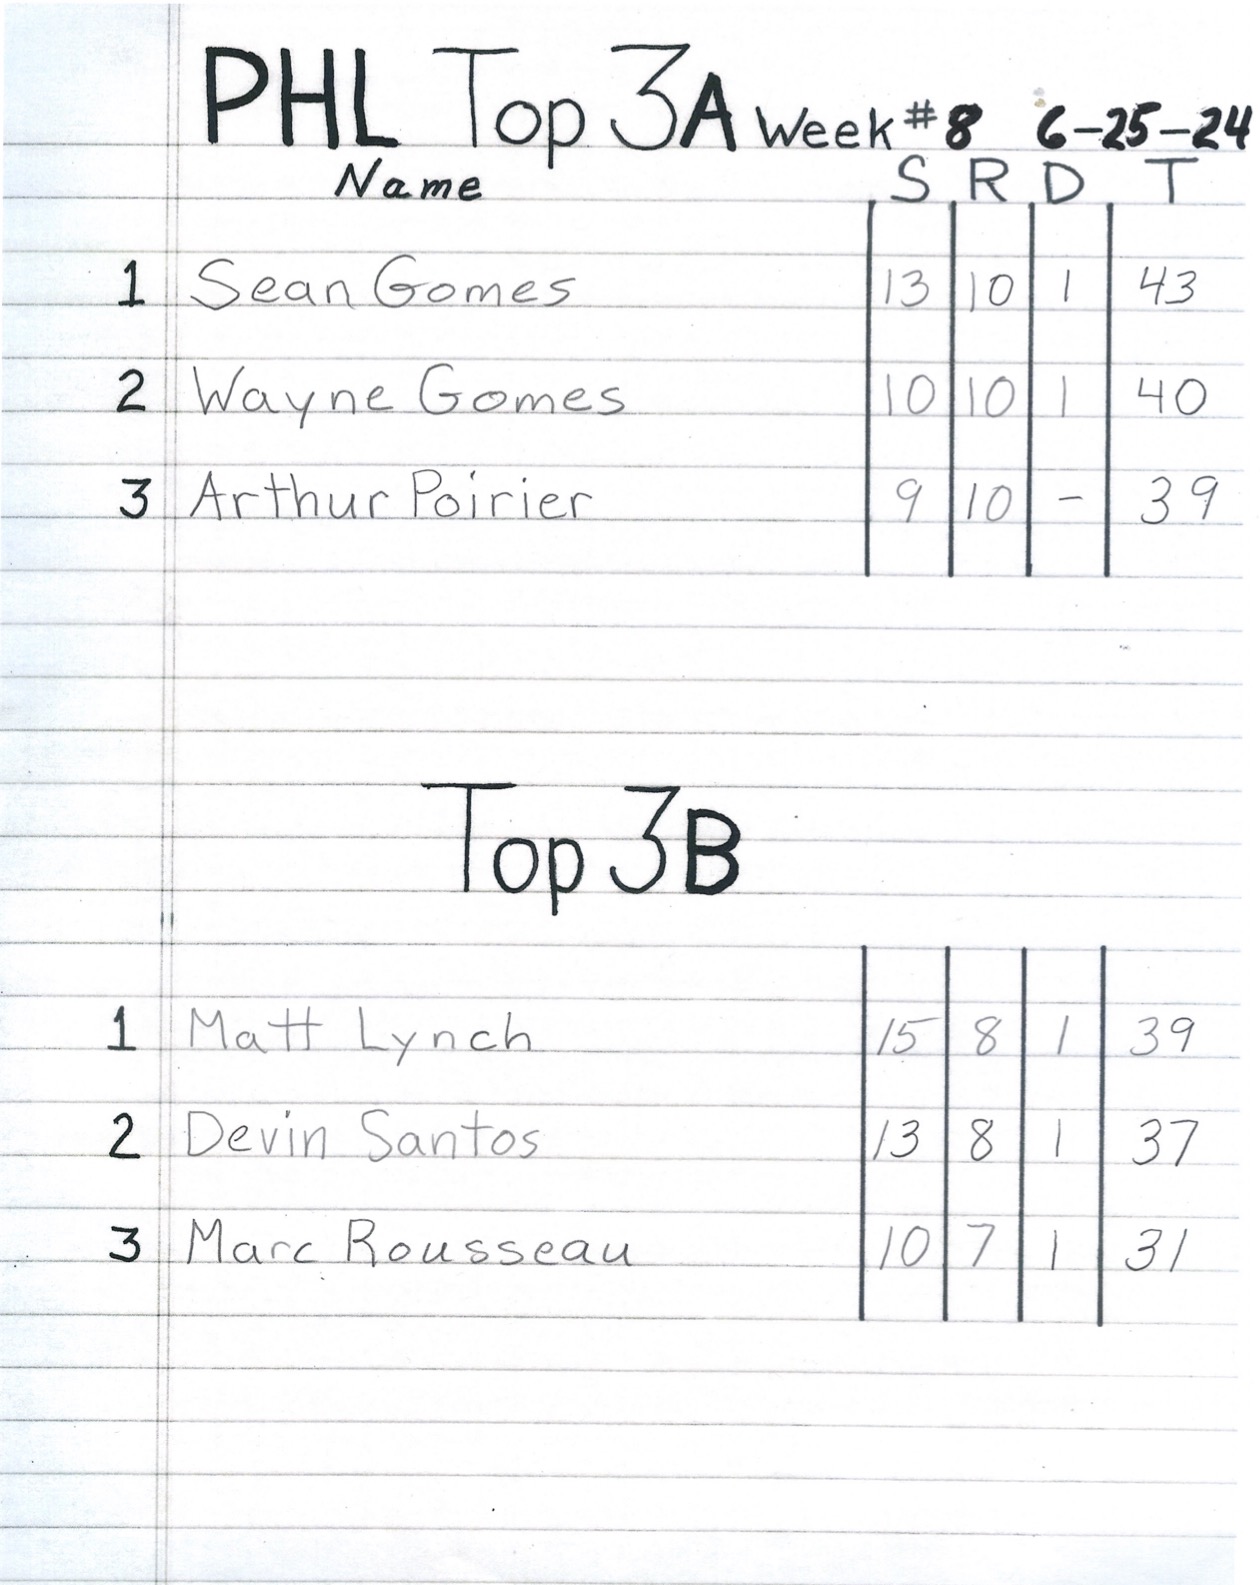 PHL Top 3A Week #8 6-25-24
Name S R D T
1 Sean Gomes 13 10 1 43
2 Wayne Gomes 10 10 1 40
3 Arthur Poirier 9 10 - 39
Top 3B
1 Matt Lynch 15 8 1 39
2 Devin Santos 13 8 1 37
3 Marc Rousseau 10 7 1 31